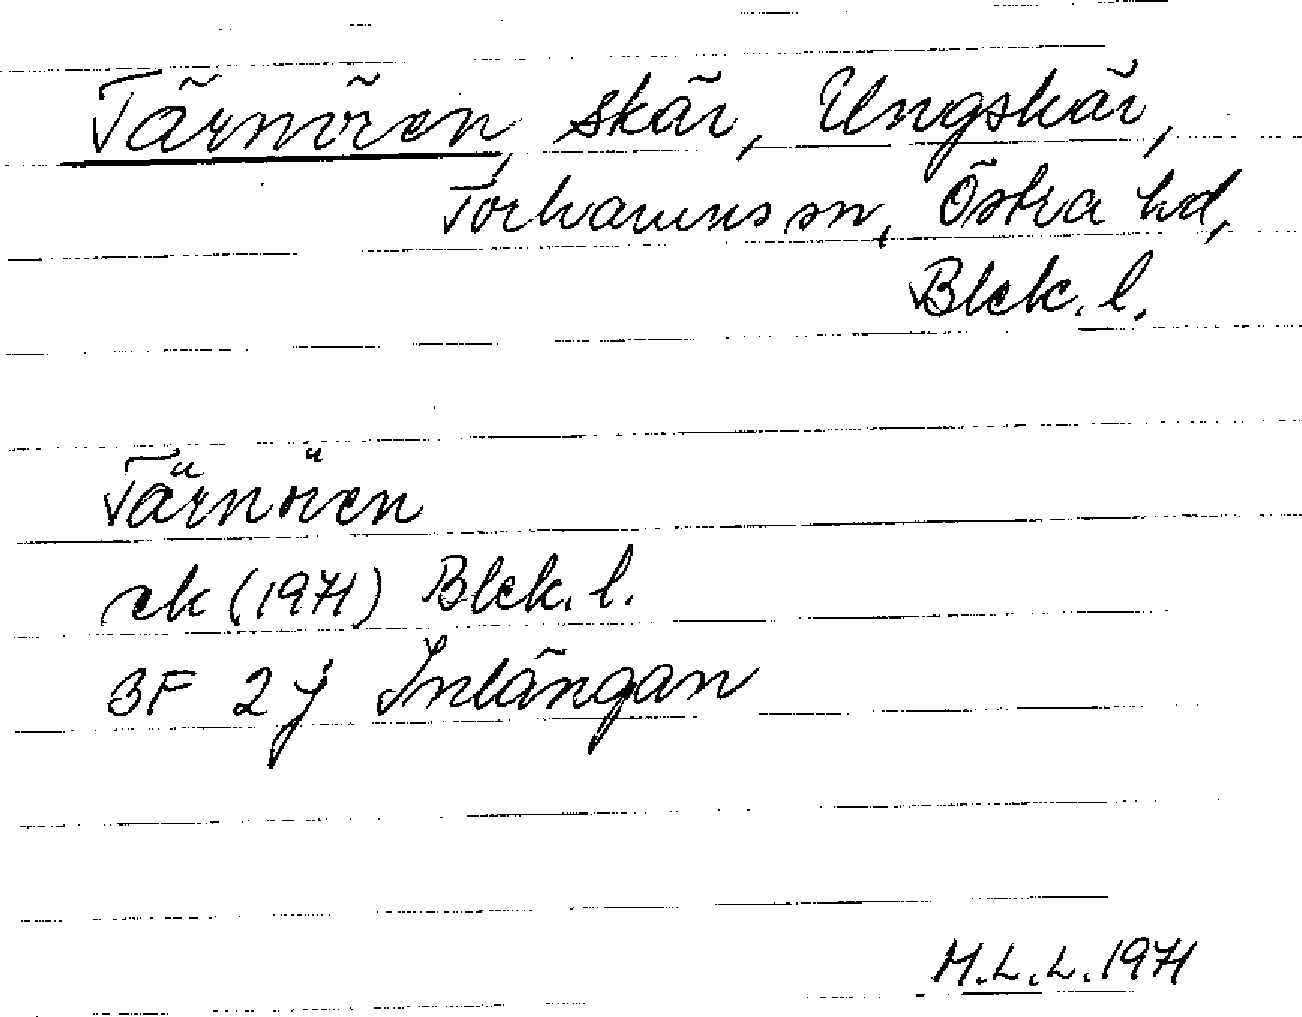 Tärnören, skär, Ungskär,
Torhamns sn, Östra hd,
Blek. l.
Tärnören
ek (1971) Blek. l.
3F 2j Inlängan
M.L.L. 1971